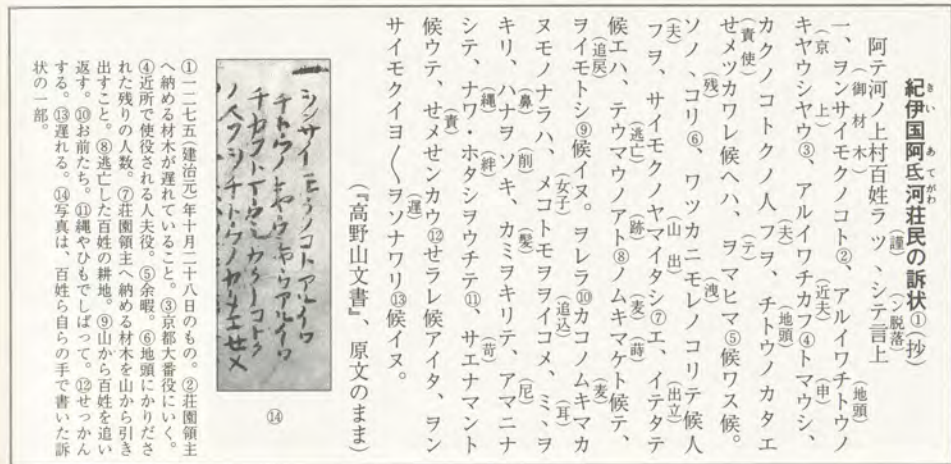 紀伊国阿氐河荘民の訴状①(抄)
きい あてがわ
阿テ河ノ上村百姓ラツヽシテ言上
(謹) (ン脱落)
一、ヲンサイモクノコト②、アルイワチトウノ
(御材木) (地頭)
キヤウシヤウ③、アルイワチカフ④トマウシ、
(京上) (近夫) (申)
カクノコトクノ人フヲ、チトウノカタエ
(夫) (地頭)
せメツカワレ候ヘハ、ヲマヒマ⑤候ワス候。
(責使) (テ)
ソノヽコリ⑥、ワツカニモレノコリテ候人
(残) (洩)
フヲ、サイモクノヤマイタシ⑦エ、イテタテ
(夫) (山出) (出立)
候エハ、テウマウノアト⑧ノムキマケト候テ、
(逃亡) (跡) (麦) (蒔)
ヲイモトシ⑨候イヌ。ヲレラ⑩カコノムキマカ
(追戻) (麦)
ヌモノナラハ、メコトモヲヲイコメ、ミヽヲ
(女子) (追込) (耳)
キリ、ハナヲソキ、カミヲキリテ、アマニナ
(鼻) (削) (髪) (尼)
シテ、ナワ・ホタシヲウチテ⑪、サエナマント
(縄) (絆) (苛)
候ウテ、せメせンカウ⑫せラレ候アイタ、ヲン
(責)
サイモクイヨ〱ヲソナワリ⑬候イヌ。
(遅)
(『高野山文書』、原文のまま)
⑭
①一二七五(建治元)年十月二十八日のもの。②荘園領主
へ納める材木が遅れていること。③京都大番役にいく。
④近所で使役される人夫役。⑤余暇。⑥地頭にかりださ
れた残りの人数。⑦荘園領主へ納める材木を山から引き
出すこと。⑧逃亡した百姓の耕地。⑨山から百姓を追い
返す。⑩お前たち。⑪縄やひもでしばって。⑫せっかん
する。⑬遅れる。⑭写真は、百姓ら自らの手で書いた訴
状の一部。